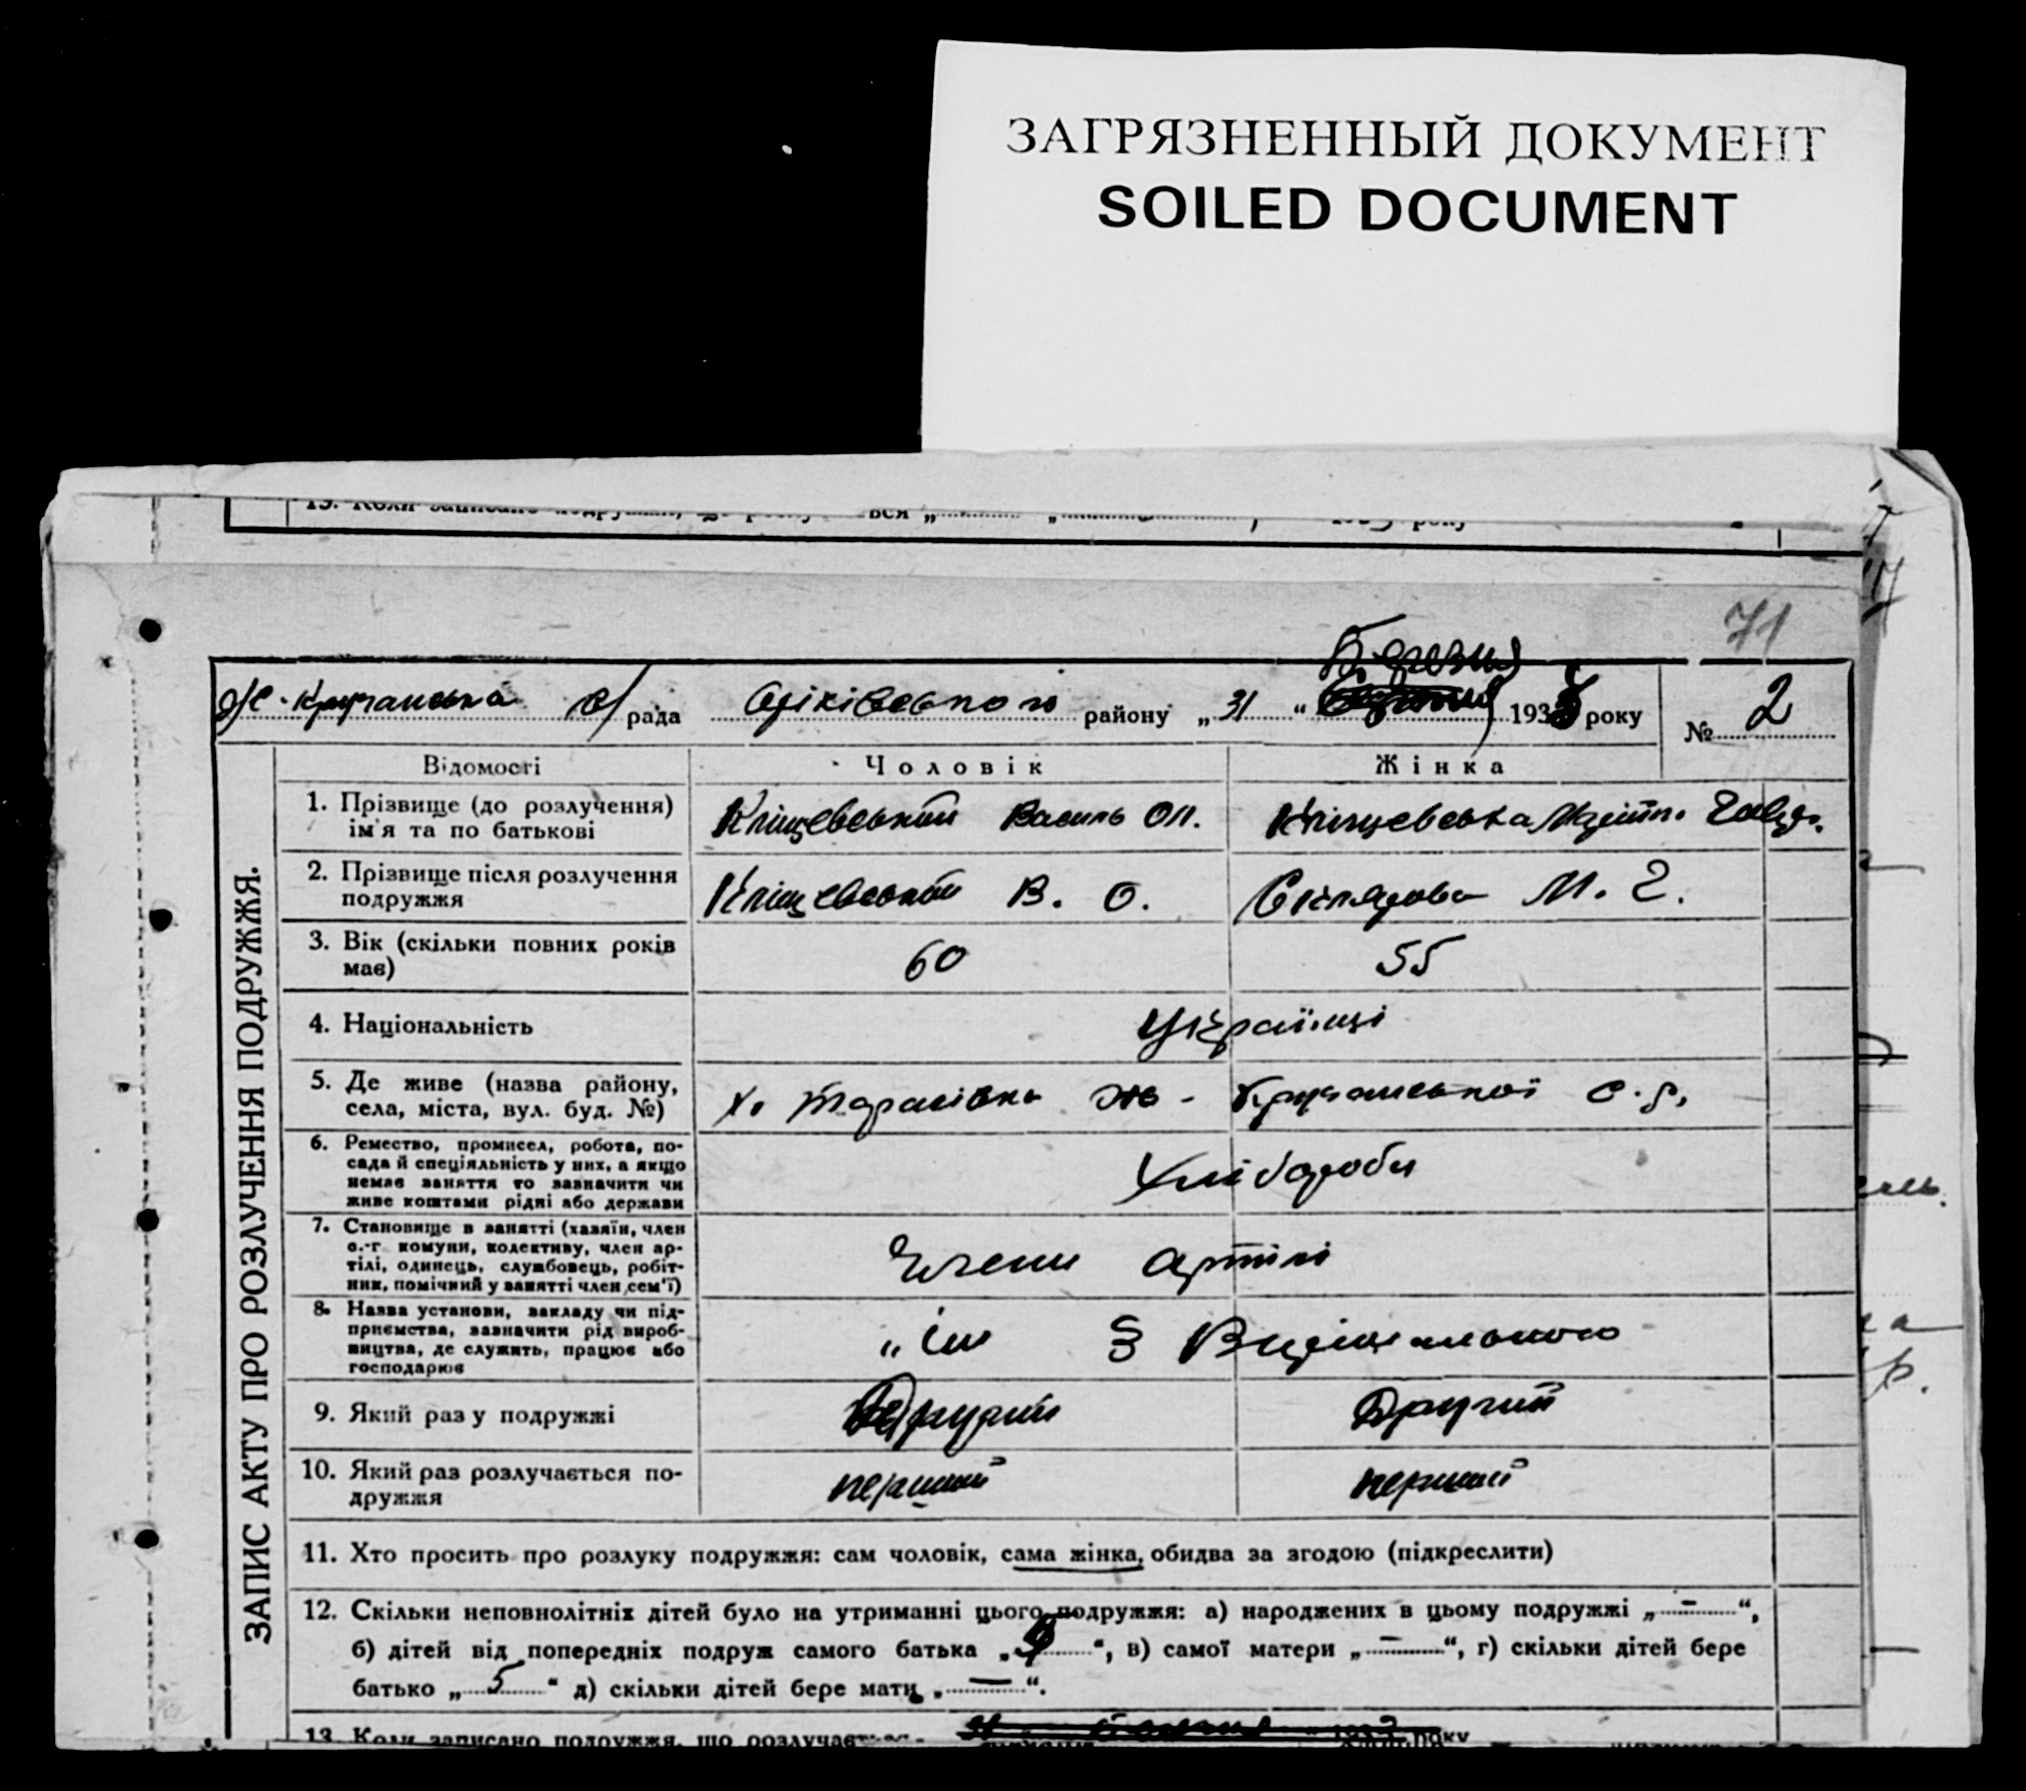 ЗАГРЯЗНЕННЫЙ ДОКУМЕНТ
SOILED DOCUMENT
71
Березня
рада району „ 31 “ 193 року № 2
ЗАПИС АКТУ ПРО РОЗЛУЧЕННЯ ПОДРУЖЖЯ.
Відомості Чоловік Жінка
1. Прізвище (до розлучення) ім'я та по батькові
Кліщевський Василь Оп. Кліщевська
2. Прізвище після розлучення подружжя
Кліщевський В. О. Склярова М. Г.
3. Вік (скільки повних років має)
60 55
4. Національність
Українці
5. Де живе (назва району, села, міста, вул. буд. №)
х. Тарасівка с. р.
6. Ремество, промисел, робота, по-
сада й спеціяльність у них, а якщо
немає заняття то зазначити чи
живе коштами рідні або держави
Хлібороби
7. Становище в занятті (хазяїн, член
с.-г. комуни, колективу, член ар-
тілі, одинець, службовець, робіт-
ник, помічний у занятті член сем'ї)
Члени артілі
8. Назва установи, закладу чи під-
приємства, зазначити рід вироб-
ництва, де служить, працює або
господарює
9. Який раз у подружжі
Другий Другий
10. Який раз розлучається по-
дружжя
перший перший
11. Хто просить про розлуку подружжя: сам чоловік, сама жінка, обидва за згодою (підкреслити)
12. Скільки неповнолітніх дітей було на утриманні цього подружжя: а) народжених в цьому подружжі „ – “,
б) дітей від попередніх подруж самого батька „ “, в) самої матери „ – “, г) скільки дітей бере
батько „ 5 “ д) скільки дітей бере мати „ – “.
13. Коли записано подружжя, що розлучається року